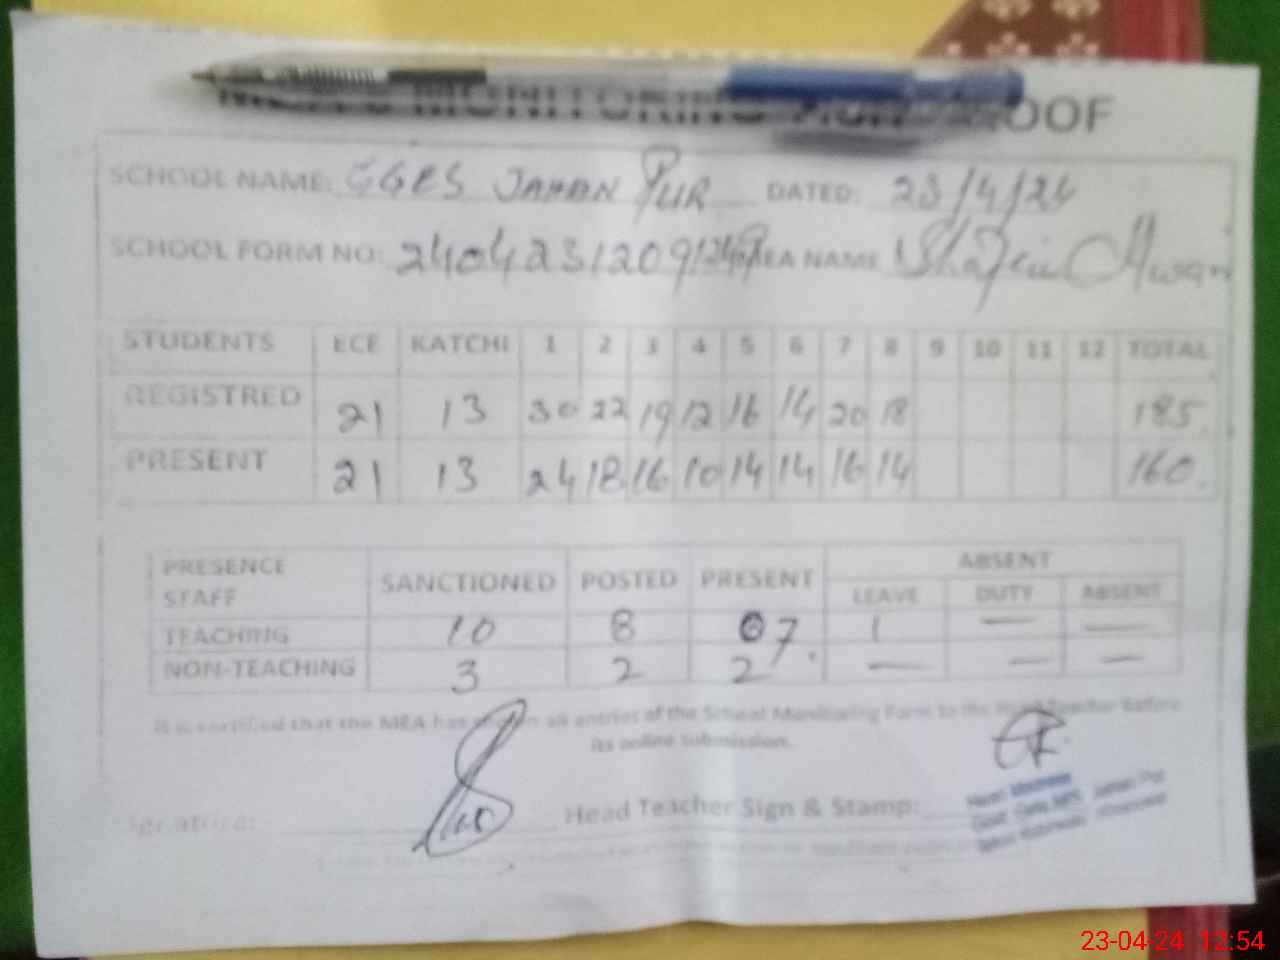 MONITORING PROOF
SCHOOL NAME: GGES JAHAN PUR DATED: 23/4/24
SCHOOL FORM NO: 2404231209 MEA NAME
STUDENTS ECE KATCHI 1 2 3 4 5 6 7 8 9 10 11 12 TOTAL
REGISTRED 21 13 30 22 19 12 16 14 20 18 185
PRESENT 21 13 24 18 16 10 14 14 16 14 160
PRESENCE STAFF SANCTIONED POSTED PRESENT ABSENT
LEAVE DUTY ABSENT
TEACHING 10 8 07 1 — —
NON-TEACHING 3 2 2 — — —
It is certified that the MEA has shown all entries of the School Monitoring Form to the Head Teacher Before
its online Submission.
Signature: Head Teacher Sign & Stamp:
Head Mistress
Jahan Pur
23-04-24 12:54